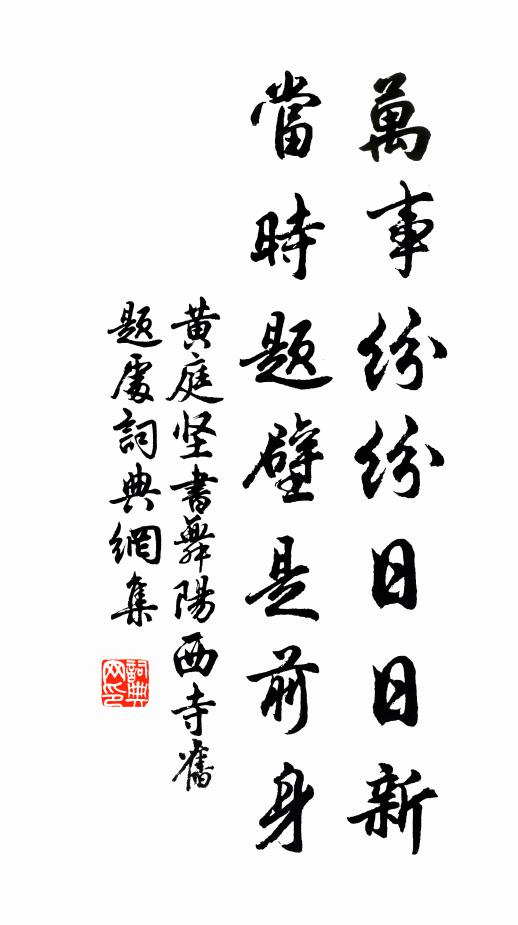 萬事紛紛日日新
當時題壁是前身
黃庭坚書舞陽西寺舊
題處詞典網集
詞典
网印